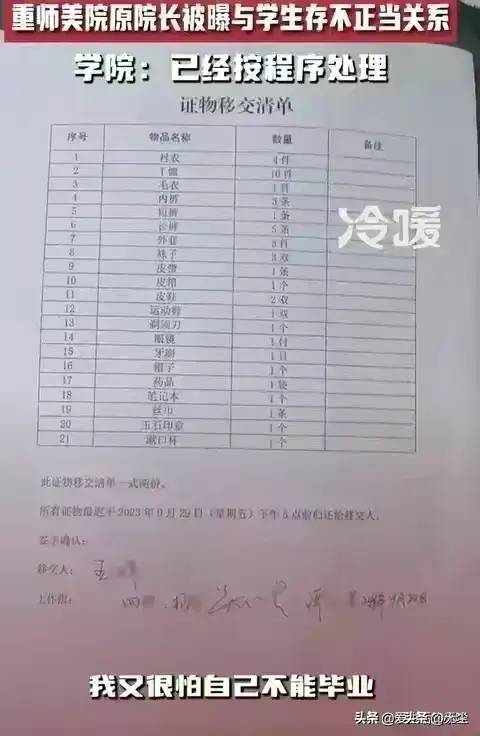 重师美院原院长被曝与学生存不正当关系
学院：已经按程序处理
证物移交清单
序号 物品名称 数量 备注
1 衬衣 4件
2 T恤 10件
3 毛衣 1件
4 内裤 3条
5 短裤 1条
6 长裤 5条
7 外套 3件
8 袜子 3双
9 皮带 1条
10 皮箱 1个
11 皮鞋 2双
12 运动鞋 1双
13 剃须刀 1个
14 眼镜 1付
15 牙刷 1
16 帽子 1个
17 药品 1袋
18 笔记本 1个
19 丝巾 1条
20 玉石印章 1个
21 漱口杯 1个
冷暖
此证物移交清单一式两份。
所有证物最迟于2023年9月29日（星期五）下午5点前归还给移交人。
签字确认：
移交人：
工作组：
我又很怕自己不能毕业
头条